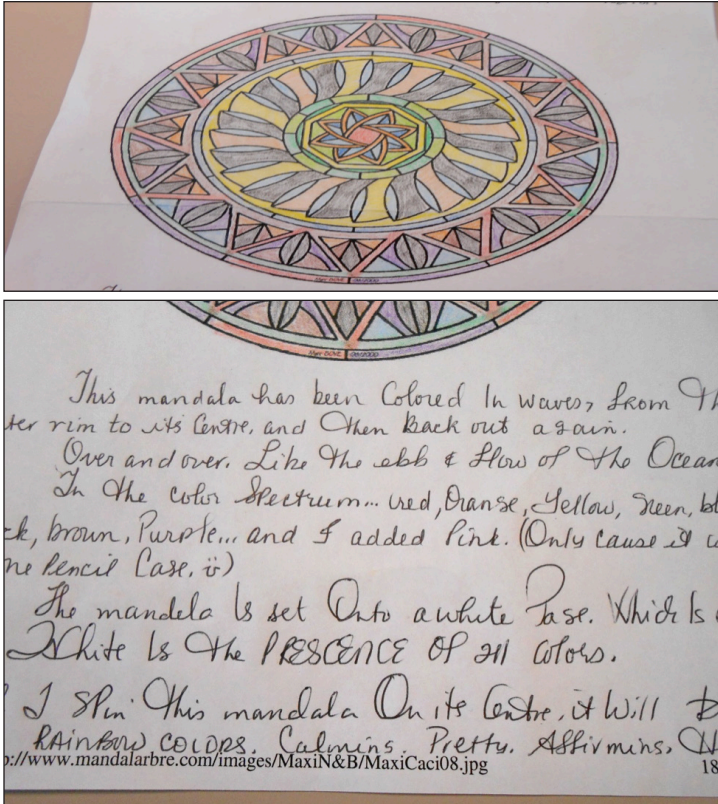 This mandala has been Colored In waves, from Th
ter rim to its Centre, and Then back out again.
Over and over. Like The ebb & flow of The Ocean
In The color Spectrum... red, Orange, Yellow, Green, bl
ck, brown, Purple... and I added Pink. (Only cause it
ne Pencil Case. ü)
The mandela Is set Onto a white Page. Which Is
White Is The PRESCENCE OF all Colors.
I Spin This mandala On its Centre, it Will
RAINBOW COLORS. Calming. Pretty. Affirming.
o://www.mandalarbre.com/images/MaxiN&B/MaxiCaci08.jpg
18